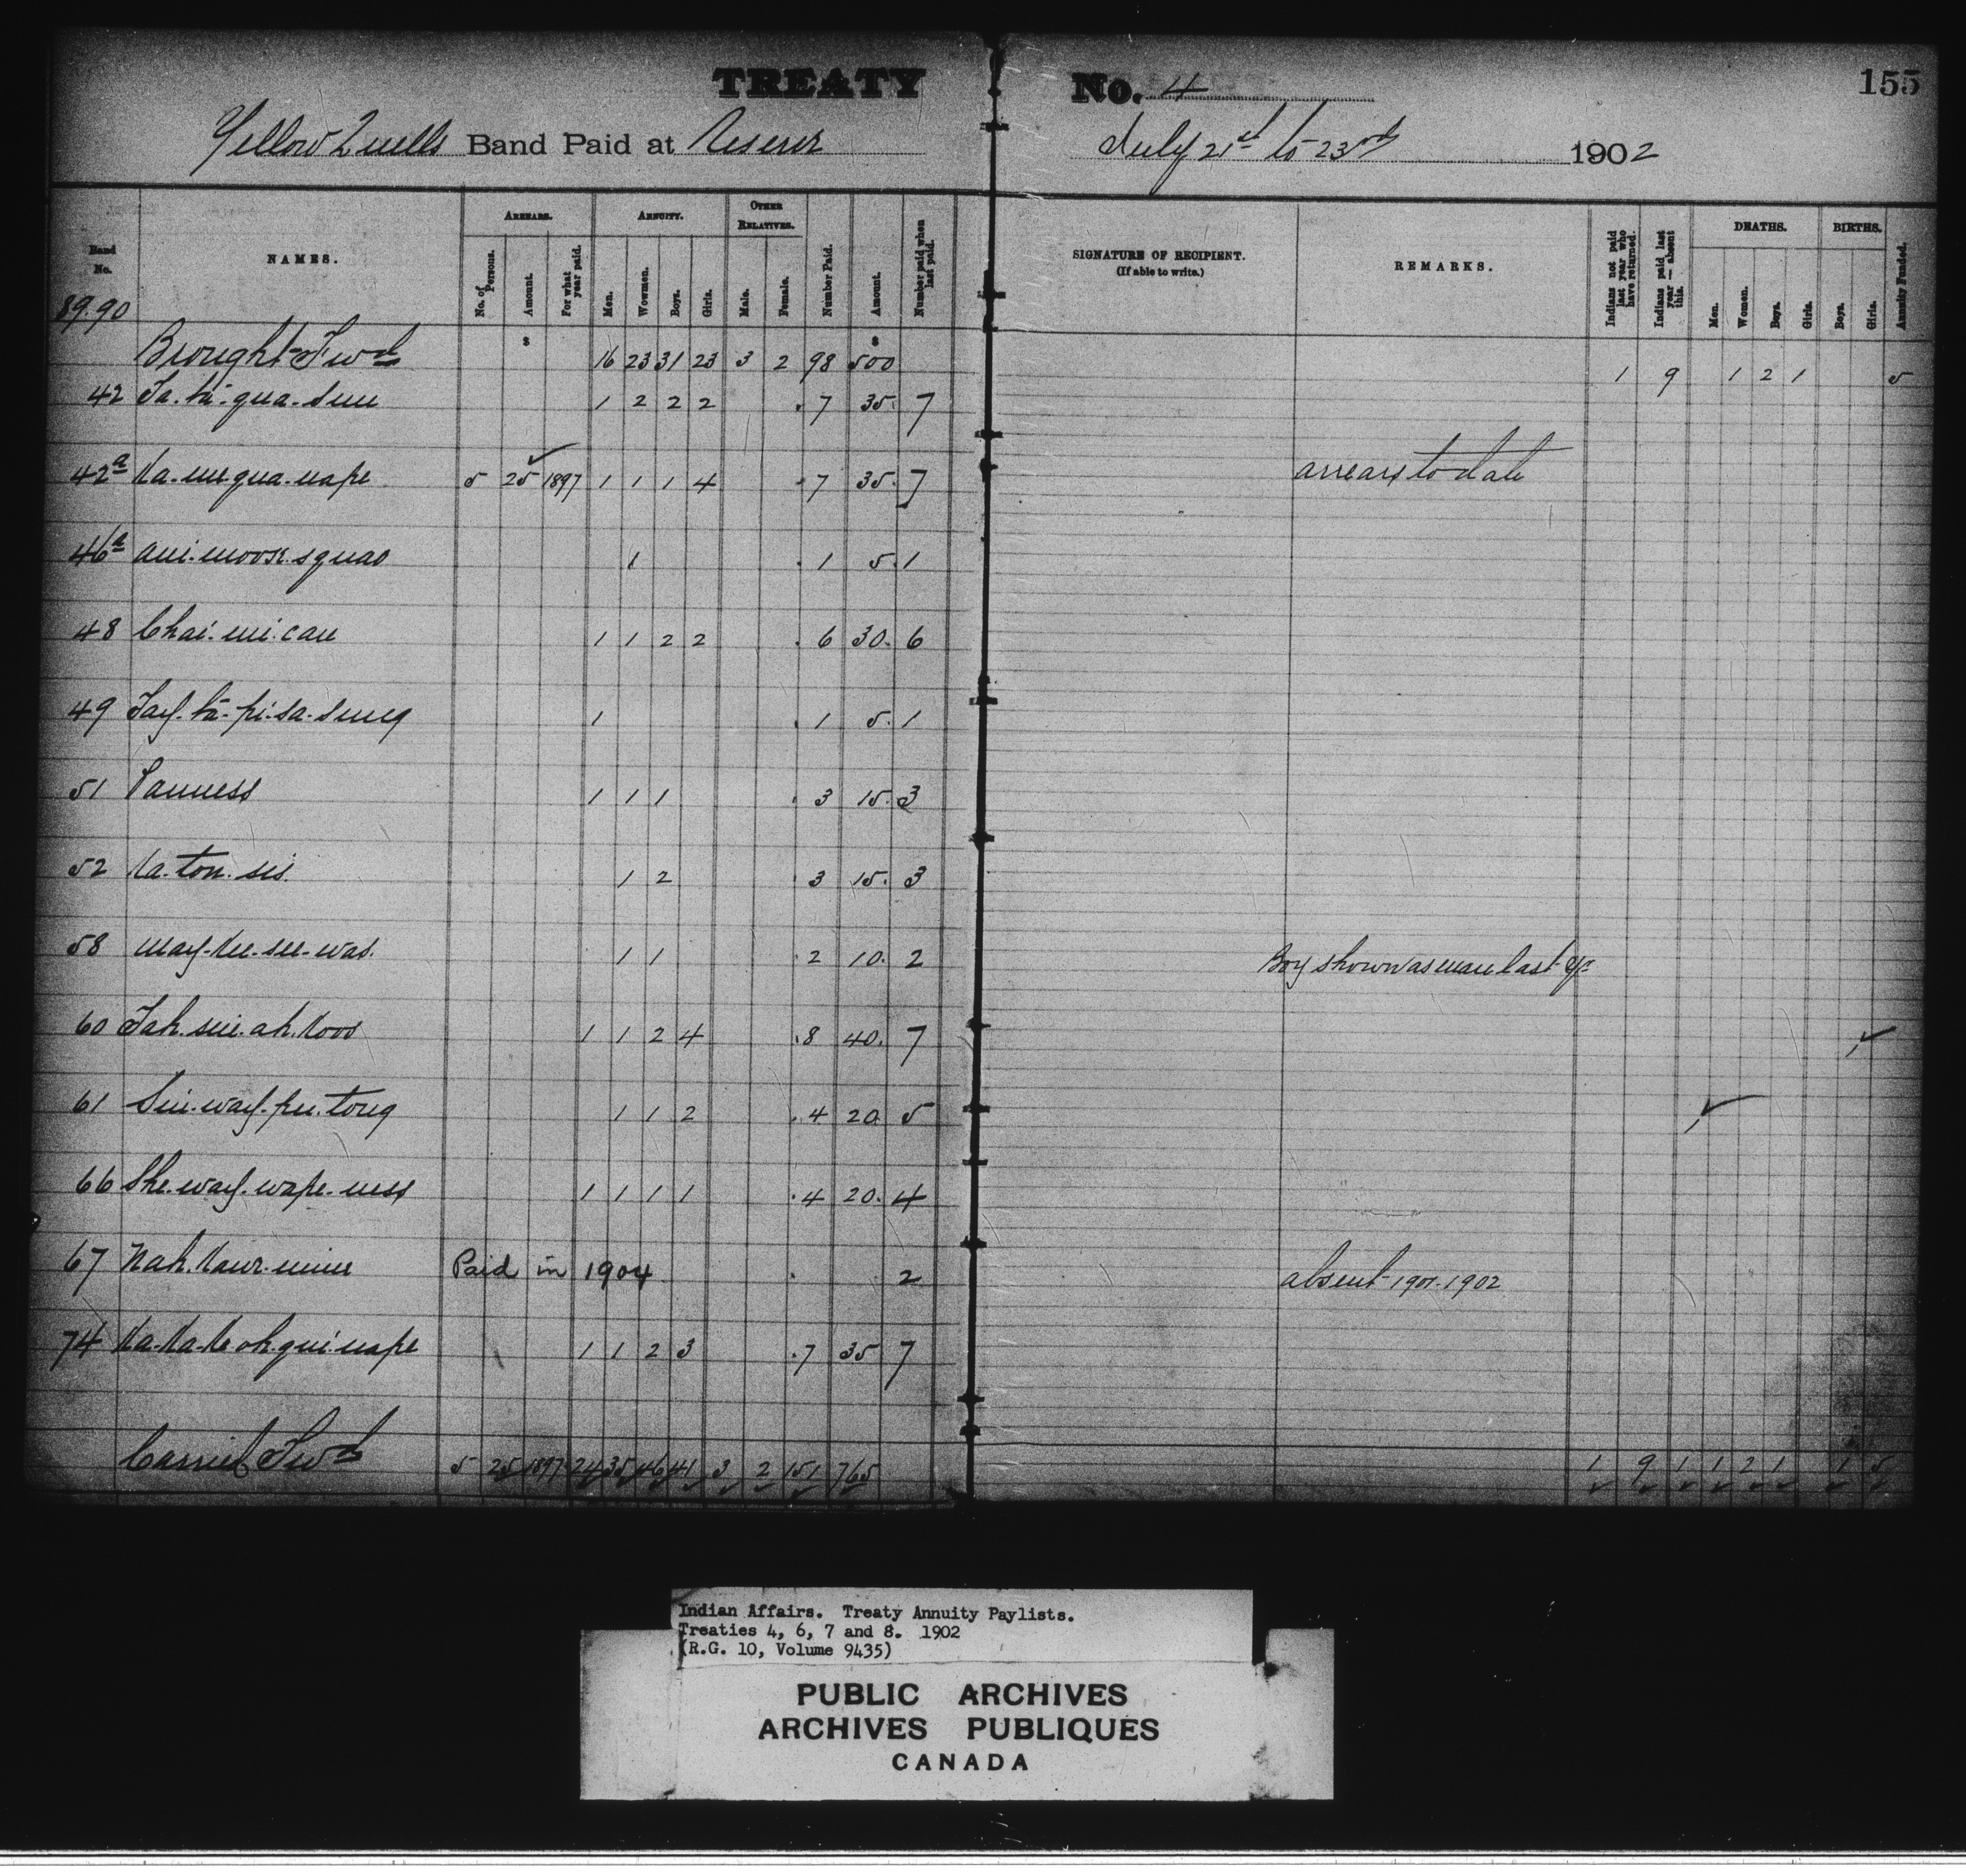 TREATY No. 4 155
Yellow Quills Band Paid at Reserve July 21st to 23rd 1902
Band No. NAMES. ARREARS. No. of Persons. Amount. For what year paid. ANNUITY. Men. Women. Boys. Girls. OTHER RELATIVES. Male. Female. Number Paid. Amount. Number paid when last paid. SIGNATURE OF RECIPIENT. (If able to write.) REMARKS. Indians not paid last year who have returned. Indians paid last year — absent this. DEATHS. Men. Women. Boys. Girls. BIRTHS. Boys. Girls. Annuity Funded.
89.90
$ $
Brought Fwd 16 23 31 23 3 2 98 500 1 9 1 2 1 5
42 2 1 2 2 2 7 35. 7
42a Ka.me.qua.nape 5 25 1897 1 1 1 4 7 35. 7 arrears to date
46a Ani.moosk.squao 1 1 5. 1
48 Chai.mi.can 1 1 2 2 6 30. 6
49 1 1 5. 1
51 Panness 1 1 1 3 15. 3
52 Ka.ton.sis. 1 2 3 15. 3
58 May-kee-see-was. 1 1 2 10. 2 Boy shown as man last yr
60 1 1 2 4 8 40. 7 1
61 1 1 2 4 20. 5 1
66 She.way.wape.ness 1 1 1 1 4 20. 4
67 Paid in 1904 2 absent 1901-1902
74 Ka-Ka-ke oh.qui.nape 1 1 2 3 7 35 7
Carried Fwd 5 25 1897 24 35 46 41 3 2 151 765 1 9 1 1 2 1 1 5
Indian Affairs. Treaty Annuity Paylists.
Treaties 4, 6, 7 and 8. 1902
(R.G. 10, Volume 9435)
PUBLIC ARCHIVES
ARCHIVES PUBLIQUES
CANADA